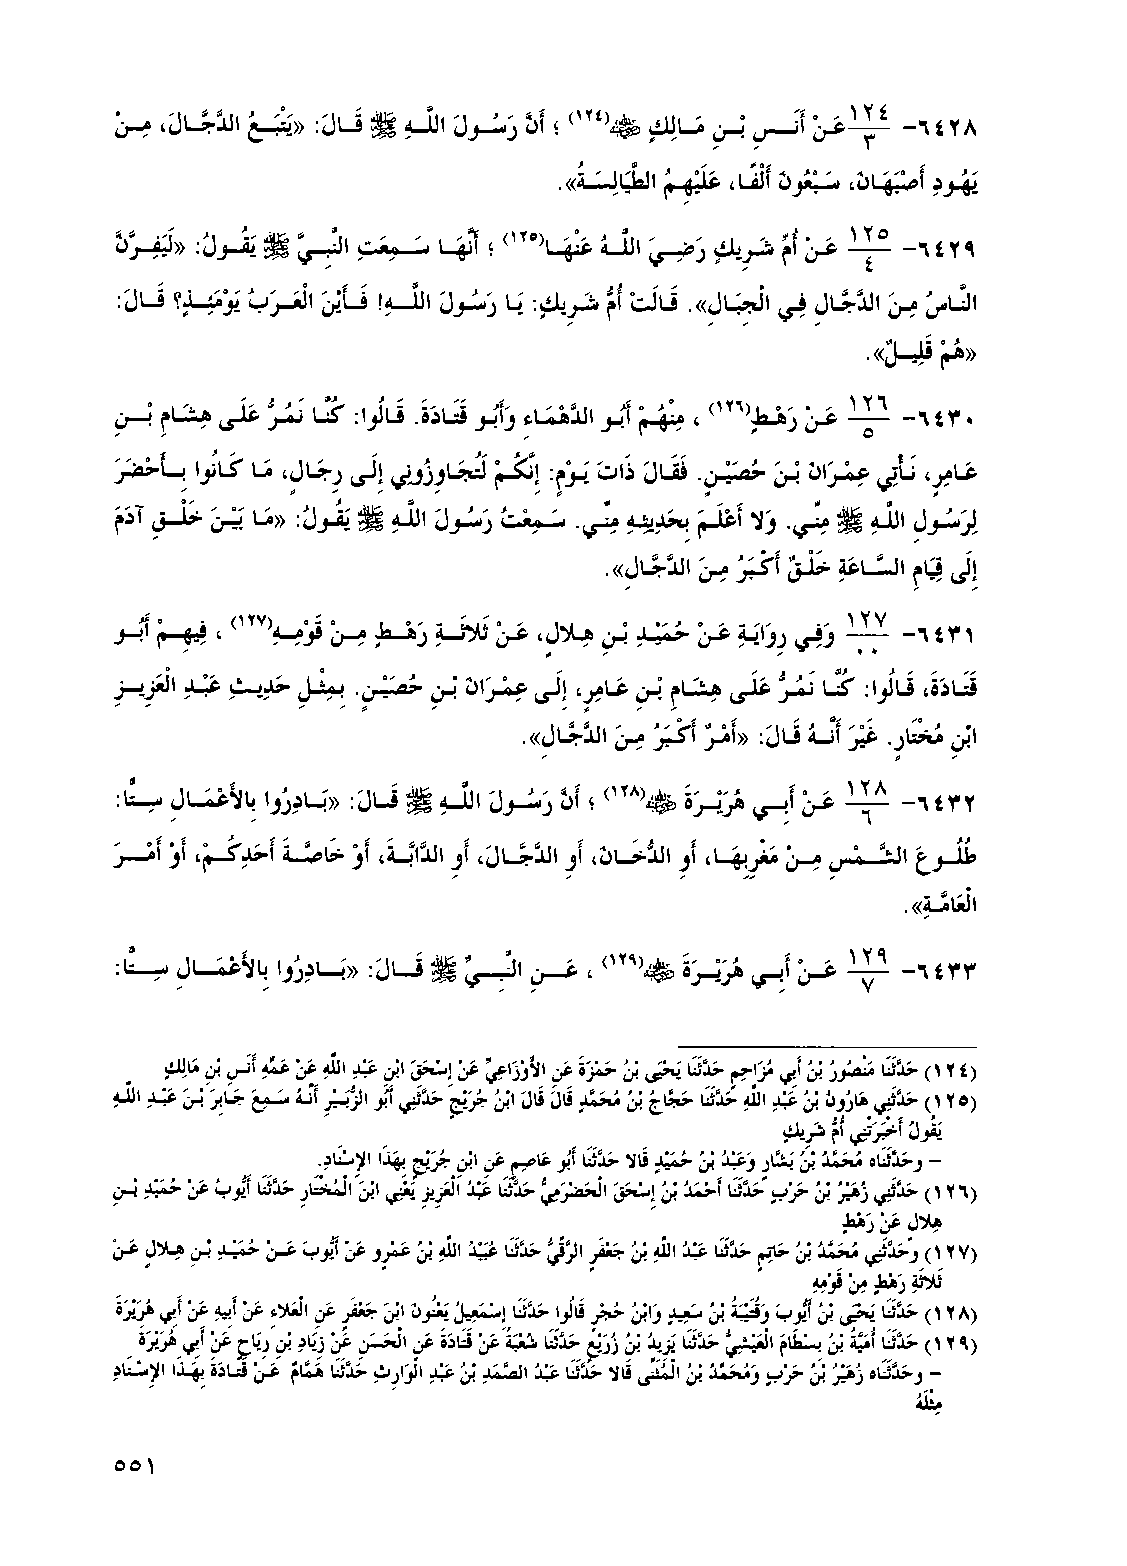 ٦٤٢٨- ١٢٤/٣ عَنْ أَنَسِ بْنِ مَالِكٍ ﷺ(١٢٤) ؛ أَنَّ رَسُولَ اللَّهِ ﷺ قَالَ: «يَتْبَعُ الدَّجَّالَ، مِنْ
يَهُودِ أَصْبَهَانَ، سَبْعُونَ أَلْفًا، عَلَيْهِمُ الطَّيَالِسَةُ».
٦٤٢٩- ١٢٥/٤ عَنْ أُمِّ شَرِيكٍ رَضِيَ اللَّهُ عَنْهَا(١٢٥) ؛ أَنَّهَا سَمِعَتِ النَّبِيَّ ﷺ يَقُولُ: «لَيَفِرَّنَّ
النَّاسُ مِنَ الدَّجَّالِ فِي الْجِبَالِ». قَالَتْ أُمُّ شَرِيكٍ: يَا رَسُولَ اللَّهِ! فَأَيْنَ الْعَرَبُ يَوْمَئِذٍ؟ قَالَ:
«هُمْ قَلِيلٌ».
٦٤٣٠- ١٢٦/٥ عَنْ رَهْطٍ(١٢٦) ، مِنْهُمْ أَبُو الدَّهْمَاءِ وَأَبُو قَتَادَةَ. قَالُوا: كُنَّا نَمُرُّ عَلَى هِشَامِ بْنِ
عَامِرٍ، نَأْتِي عِمْرَانَ بْنَ حُصَيْنٍ. فَقَالَ ذَاتَ يَوْمٍ: إِنَّكُمْ لَتُجَاوِزُونِي إِلَى رِجَالٍ، مَا كَانُوا بِأَحْضَرَ
لِرَسُولِ اللَّهِ ﷺ مِنِّي. وَلا أَعْلَمَ بِحَدِيثِهِ مِنِّي. سَمِعْتُ رَسُولَ اللَّهِ ﷺ يَقُولُ: «مَا بَيْنَ خَلْقِ آدَمَ
إِلَى قِيَامِ السَّاعَةِ خَلْقٌ أَكْبَرُ مِنَ الدَّجَّالِ».
٦٤٣١- ١٢٧/٠٠ وَفِي رِوَايَةِ عَنْ حُمَيْدِ بْنِ هِلالٍ، عَنْ ثَلاثَةِ رَهْطٍ مِنْ قَوْمِهِ(١٢٧) ، فِيهِمْ أَبُو
قَتَادَةَ، قَالُوا: كُنَّا نَمُرُّ عَلَى هِشَامِ بْنِ عَامِرٍ، إِلَى عِمْرَانَ بْنِ حُصَيْنٍ. بِمِثْلِ حَدِيثِ عَبْدِ الْعَزِيزِ
ابْنِ مُخْتَارٍ. غَيْرَ أَنَّهُ قَالَ: «أَمْرٌ أَكْبَرُ مِنَ الدَّجَّالِ».
٦٤٣٢- ١٢٨/٦ عَنْ أَبِي هُرَيْرَةَ ﷺ(١٢٨) ؛ أَنَّ رَسُولَ اللَّهِ ﷺ قَالَ: «بَادِرُوا بِالأَعْمَالِ سِتًّا:
طُلُوعَ الشَّمْسِ مِنْ مَغْرِبِهَا، أَوِ الدُّخَانَ، أَوِ الدَّجَّالَ، أَوِ الدَّابَّةَ، أَوْ خَاصَّةَ أَحَدِكُمْ، أَوْ أَمْرَ
الْعَامَّةِ».
٦٤٣٣- ١٢٩/٧ عَنْ أَبِي هُرَيْرَةَ ﷺ(١٢٩) ، عَنِ النَّبِيِّ ﷺ قَالَ: «بَادِرُوا بِالأَعْمَالِ سِتًّا:
(١٢٤) حَدَّثَنَا مَنْصُورُ بْنُ أَبِي مُزَاحِمٍ حَدَّثَنَا يَحْيَى بْنُ حَمْزَةَ عَنِ الأَوْزَاعِيِّ عَنْ إِسْحَقَ ابْنِ عَبْدِ اللَّهِ عَنْ عَمِّهِ أَنَسِ بْنِ مَالِكٍ
(١٢٥) حَدَّثَنِي هَارُونُ بْنُ عَبْدِ اللَّهِ حَدَّثَنَا حَجَّاجُ بْنُ مُحَمَّدٍ قَالَ قَالَ ابْنُ جُرَيْجٍ حَدَّثَنِي أَبُو الزُّبَيْرِ أَنَّهُ سَمِعَ جَابِرَ بْنَ عَبْدِ اللَّهِ
يَقُولُ أَخْبَرَتْنِي أُمُّ شَرِيكٍ
– وحَدَّثَنَاه مُحَمَّدُ بْنُ بَشَّارٍ وَعَبْدُ بْنُ حُمَيْدٍ قَالا حَدَّثَنَا أَبُو عَاصِمٍ عَنِ ابْنِ جُرَيْجٍ بِهَذَا الإِسْنَادِ.
(١٢٦) حَدَّثَنِي زُهَيْرُ بْنُ حَرْبٍ حَدَّثَنَا أَحْمَدُ بْنُ إِسْحَقَ الْحَضْرَمِيُّ حَدَّثَنَا عَبْدُ الْعَزِيزِ يَعْنِي ابْنَ الْمُخْتَارِ حَدَّثَنَا أَيُّوبُ عَنْ حُمَيْدِ بْنِ
هِلالٍ عَنْ رَهْطٍ
(١٢٧) وحَدَّثَنِي مُحَمَّدُ بْنُ حَاتِمٍ حَدَّثَنَا عَبْدُ اللَّهِ بْنُ جَعْفَرٍ الرَّقِّيُّ حَدَّثَنَا عُبَيْدُ اللَّهِ بْنُ عَمْرٍو عَنْ أَيُّوبَ عَنْ حُمَيْدِ بْنِ هِلالٍ عَنْ
ثَلاثَةِ رَهْطٍ مِنْ قَوْمِهِ
(١٢٨) حَدَّثَنَا يَحْيَى بْنُ أَيُّوبَ وَقُتَيْبَةُ بْنُ سَعِيدٍ وَابْنُ حُجْرٍ قَالُوا حَدَّثَنَا إِسْمَعِيلُ يَعْنُونَ ابْنَ جَعْفَرٍ عَنِ الْعَلاءِ عَنْ أَبِيهِ عَنْ أَبِي هُرَيْرَةَ
(١٢٩) حَدَّثَنَا أُمَيَّةُ بْنُ بِسْطَامَ الْعَيْشِيُّ حَدَّثَنَا يَزِيدُ بْنُ زُرَيْعٍ حَدَّثَنَا شُعْبَةُ عَنْ قَتَادَةَ عَنِ الْحَسَنِ عَنْ زِيَادِ بْنِ رِيَاحٍ عَنْ أَبِي هُرَيْرَةَ
– وحَدَّثَنَاه زُهَيْرُ بْنُ حَرْبٍ وَمُحَمَّدُ بْنُ الْمُثَنَّى قَالا حَدَّثَنَا عَبْدُ الصَّمَدِ بْنُ عَبْدِ الْوَارِثِ حَدَّثَنَا هَمَّامٌ عَنْ قَتَادَةَ بِهَذَا الإِسْنَادِ
مِثْلَهُ
٥٥١